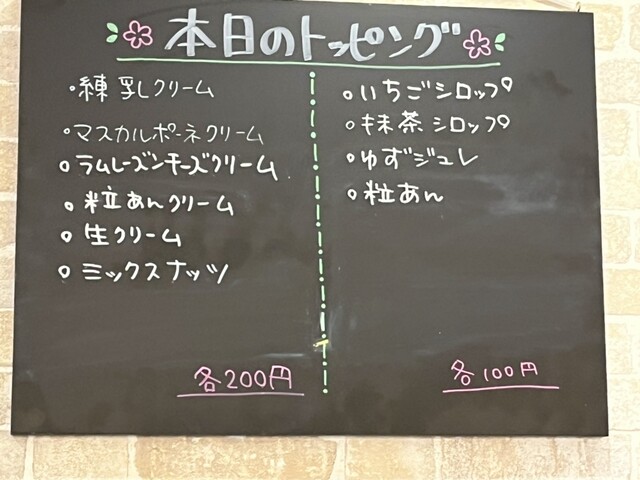 本日のトッピング
・練乳クリーム
・マスカルポーネクリーム
○ラムレーズンチーズクリーム
○粒あんクリーム
○生クリーム
○ミックスナッツ
各200円
○いちごシロップ
○抹茶シロップ
○ゆずジュレ
○粒あん
各100円